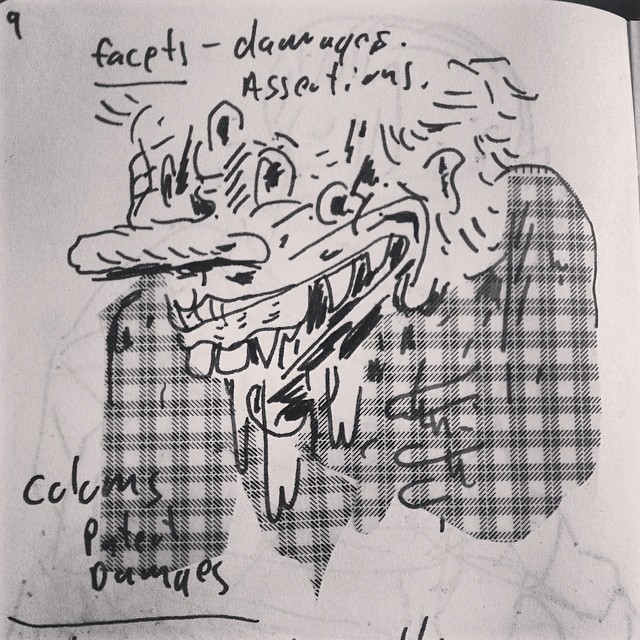 9
facets - damages.
Assertions.
Colours
Patent
Damages